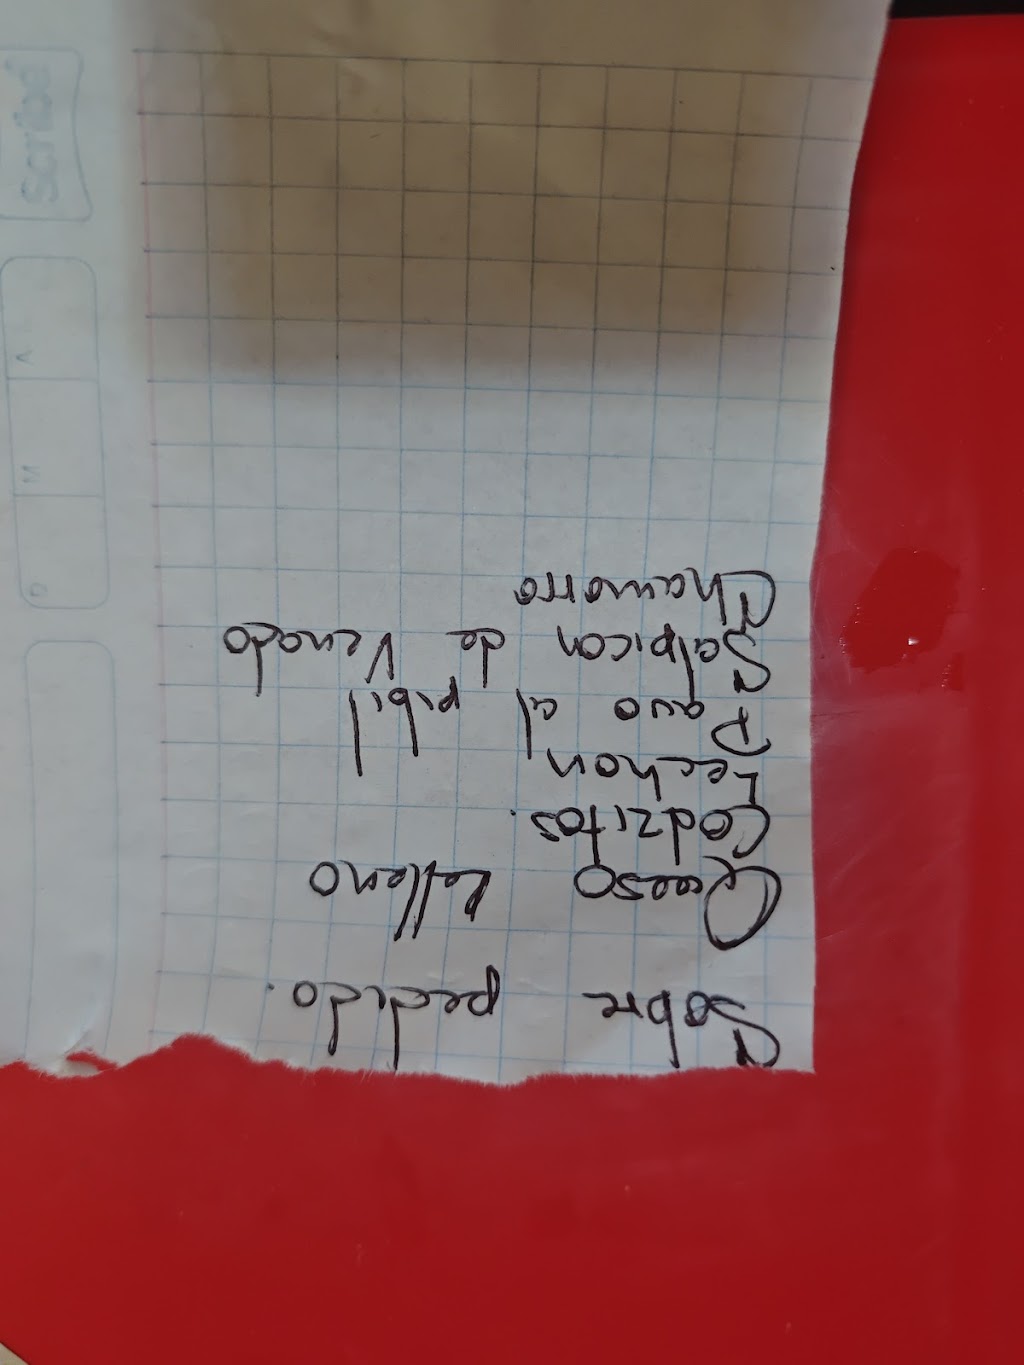 Sobre pedido.
Queso Relleno
Codzitos.
Lechon
Pavo al pibil
Salpicon de Venado
Chamorro
Scribe
D M A